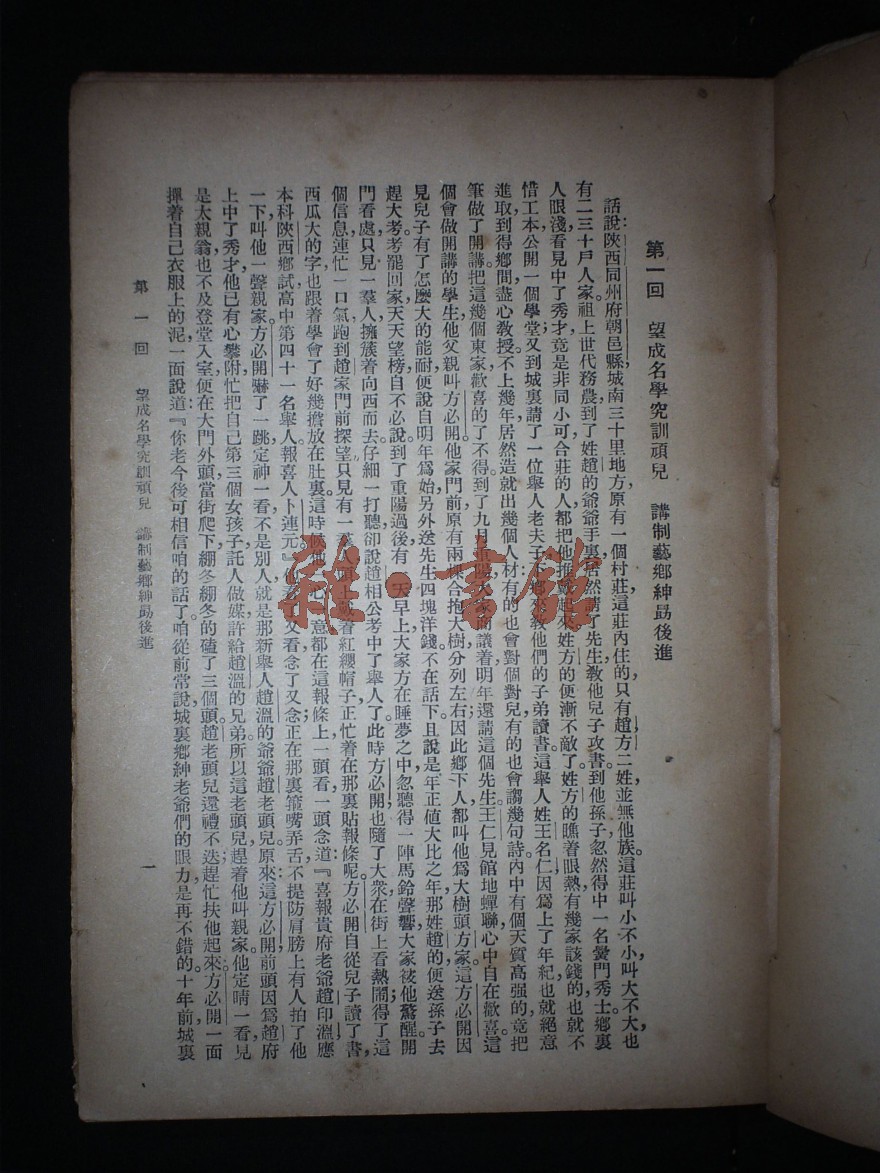 第一回　望成名學究訓頑兒　講制藝鄉紳勗後進
話說：陝西同州府朝邑縣城南三十里地方，原有一個村莊。這莊內住的，只有趙、方二姓，並無他族。這莊叫小不小，叫大不大，也
有二三十戶人家。祖上世代務農。到了姓趙的爺爺手裏，居然請了先生，教他兒子攻書；到他孫子，忽然得中一名黌門秀士。鄉裏
人眼淺，看見中了秀才，竟是非同小可，合莊的人，都把他推戴起來，姓方的便漸漸不敵了。姓方的瞧着眼熱，有幾家該錢的，也就不
惜工本，公開一個學堂；又到城裏請了一位舉人老夫子，下鄉來教他們的子弟讀書。這舉人姓王名仁，因爲上了年紀，也就絕意
進取，到得鄉間，盡心教授。不上幾年，居然造就出幾個人材：有的也會對個對兒，有的也會謅幾句詩，內中有個天質高强的，竟把
筆做了開講。把這幾個東家歡喜的了不得。到了九月重陽，大家商議着，明年還請這個先生。王仁見館地蟬聯，心中自在歡喜。這
個會做開講的學生，他父親叫方必開。他家門前，原有兩棵合抱大樹，分列左右，因此鄉下人都叫他爲大樹頭方家。這方必開因
見兒子有了怎麼大的能耐，便說自明年爲始，另外送先生四塊洋錢。不在話下。且說是年正值大比之年，那姓趙的便送孫子去
趕大考。考罷回家，天天望榜，自不必說。到了重陽過後，有一天早上，大家方在睡夢之中，忽聽得一陣馬鈴聲響，大家被他驚醒。開
門看處，只見一羣人，擁簇着向西而去。仔細一打聽，卻說趙相公考中了舉人了。此時方必開也隨了大衆在街上看熱鬧，得了這
個信息，連忙一口氣跑到趙家門前探望。只見有一羣人，頭上戴着紅纓帽子，正忙着在那裏貼報條呢。方必開自從兒子讀了書，
西瓜大的字，也跟着學會了好幾擔放在肚裏。這時候他一心一意都在這報條上，一頭看，一頭念道：『喜報貴府老爺趙印溫，應
本科陝西鄉試，高中第四十一名舉人。報喜人卜連元。』他看了又看，念了又念，正在那裏簸嘴弄舌，不提防肩膀上有人拍了他
一下，叫他一聲親家。方必開嚇了一跳，定神一看，不是別人，就是那新舉人趙溫的爺爺趙老頭兒。原來這方必開，前頭因爲趙府
上中了秀才，他已有心攀附，忙把自己第三個女孩子，託人做媒，許給趙溫的兄弟，所以這老頭兒趕着他叫親家。他定睛一看，見
是太親翁，也不及登堂入室，便在大門外頭，當街爬下，綳冬綳冬的磕了三個頭。趙老頭兒還禮不迭，趕忙扶他起來。方必開一面
撣着自己衣服上的泥，一面說道：『你老今後可相信咱的話了。咱從前常說，城裏鄉紳老爺們的眼力，是再不錯的。十年前，城裏
第一回　望成名學究訓頑兒　講制藝鄉紳勗後進　一
雜·書館